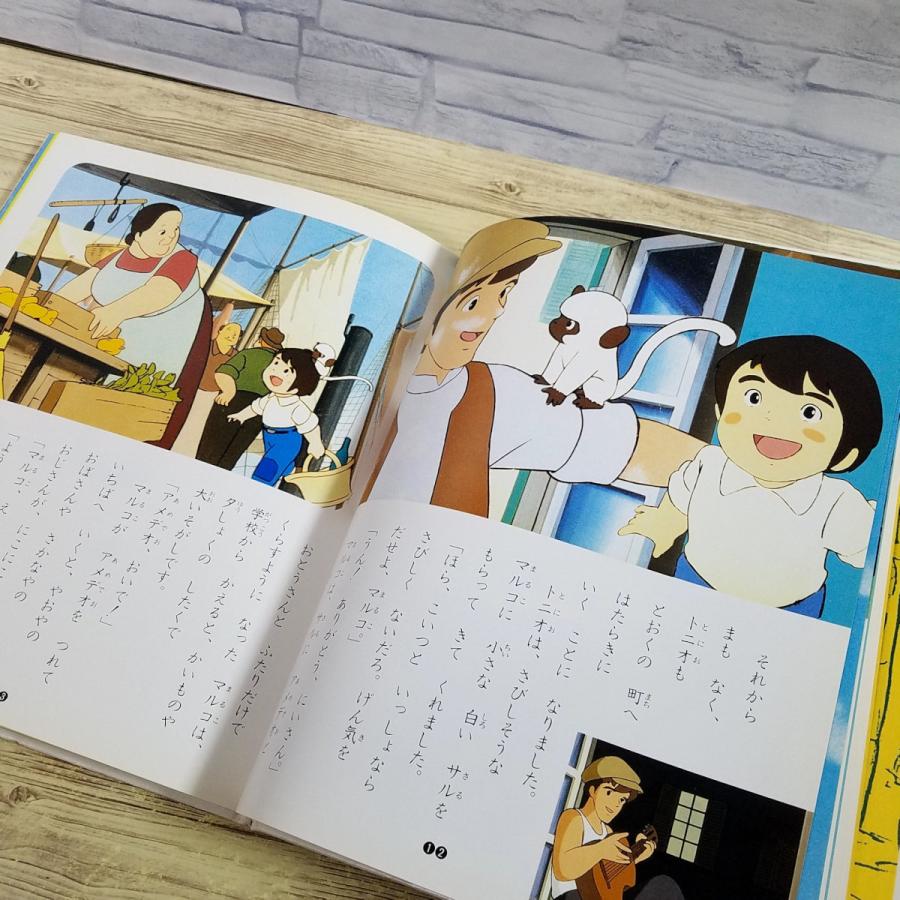 それから
まも なく、
トニオも
とおくの 町へ
はたらきに
いく ことに なりました。
トニオは、さびしそうな
マルコに 小さな 白い サルを
もらって きて くれました。
「ほら、こいつと いっしょなら
さびしく ないだろ。げん気を
だせよ、マルコ。」
「うん! ありがとう、にいさん。」
⓬
おとうさんと ふたりだけで
くらすように なった マルコは、
学校から かえると、かいものや
夕しょくの したくで
大いそがしです。
「アメデオ、おいで!」
マルコが アメデオを つれて
いちばへ いくと、やおやの
おばさんや さかなやの
おじさんが、にこにこ
「マルコ、